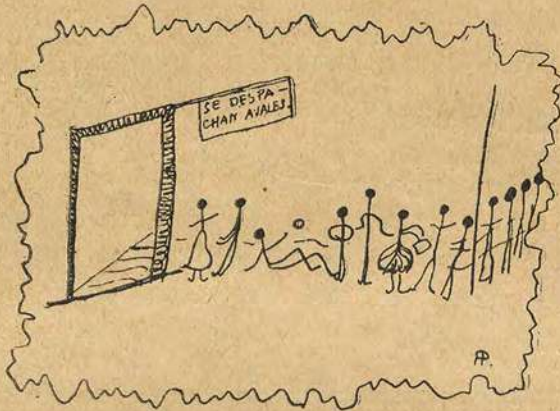 SE DESPA-
CHAN AVALES.